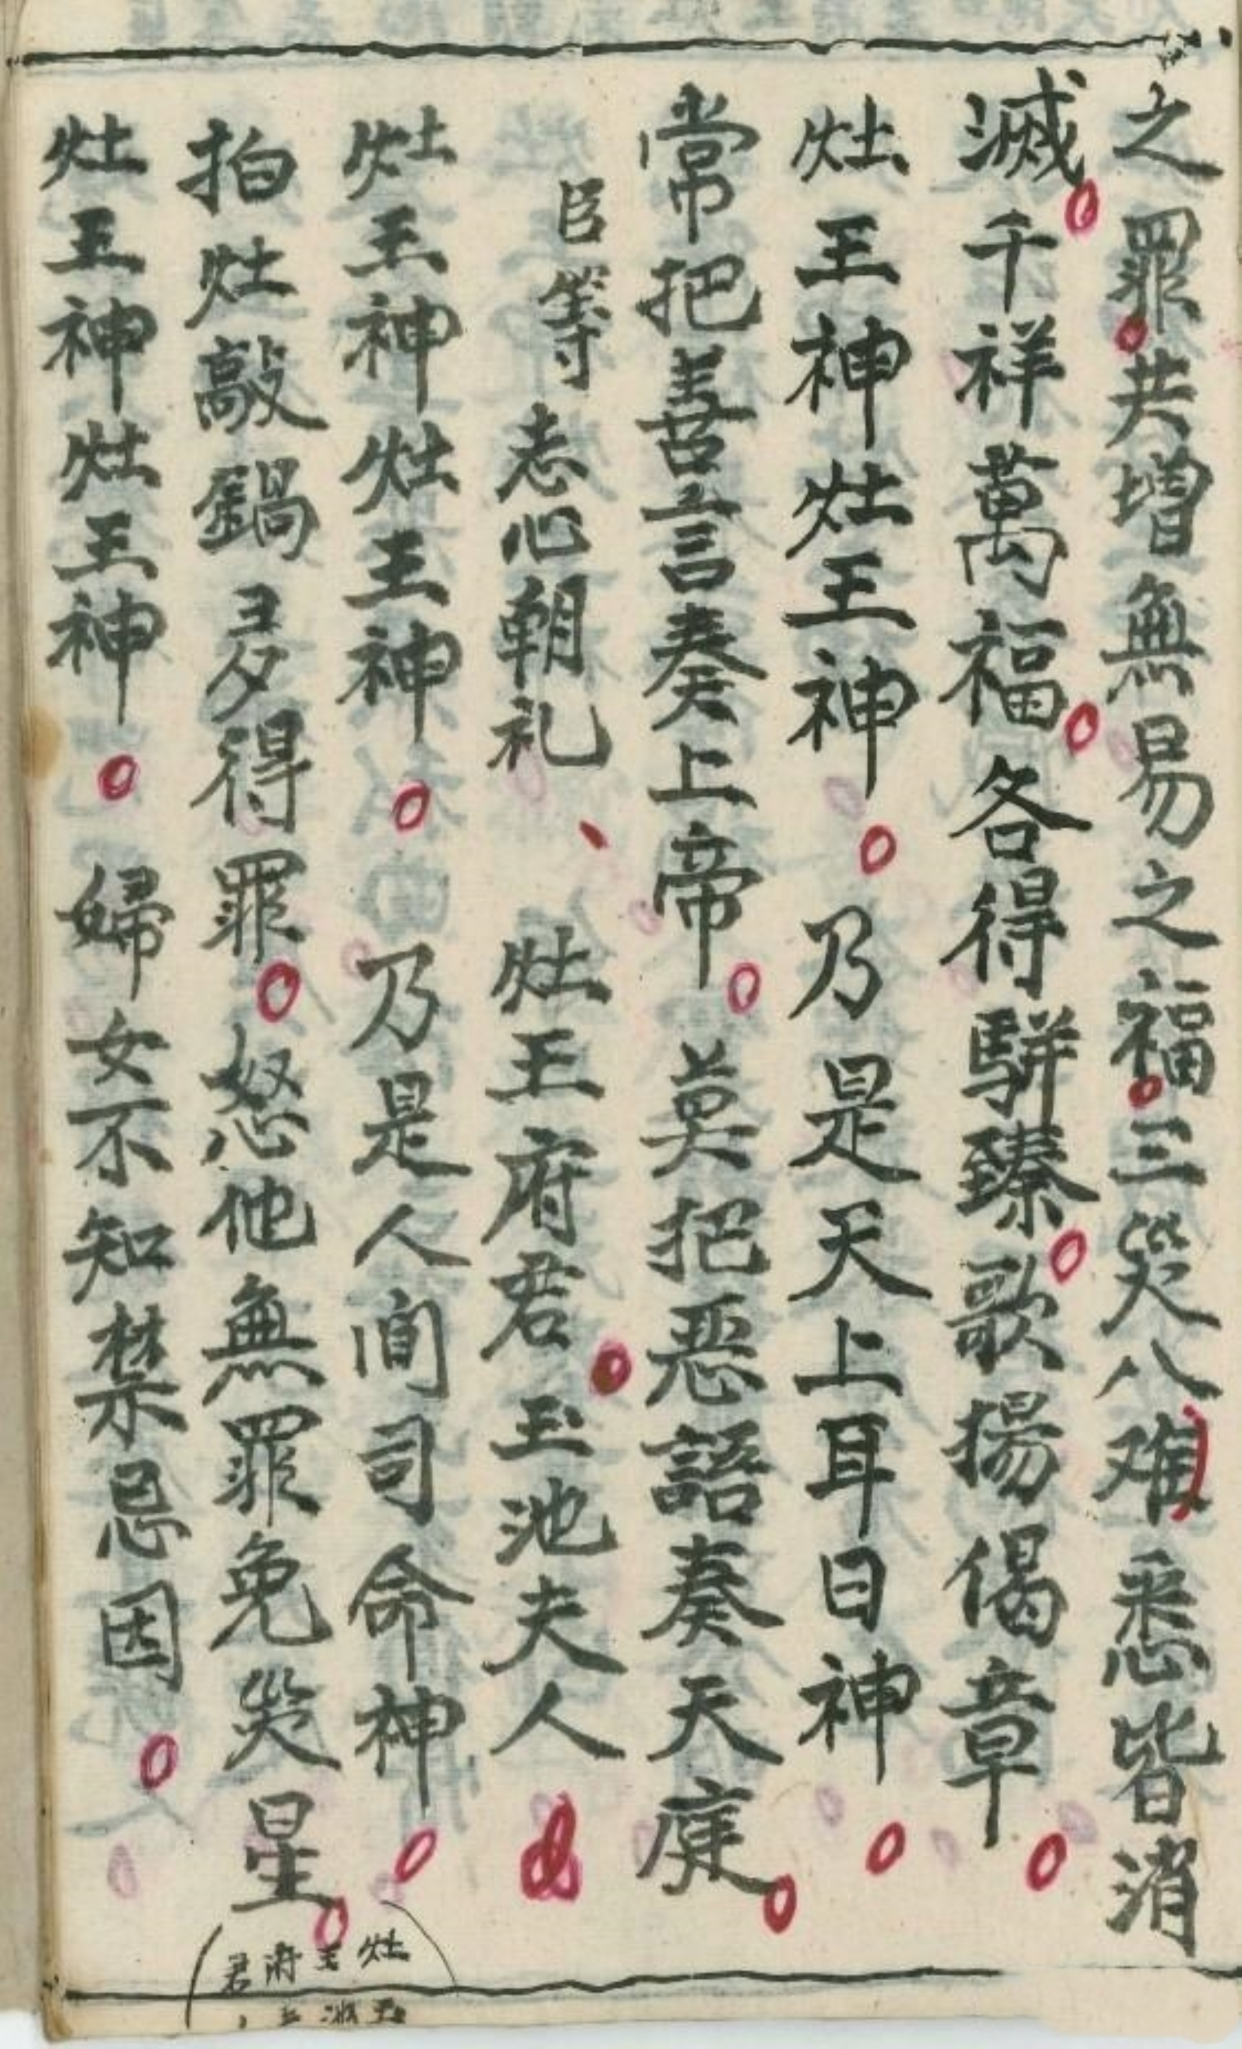 之罪共增無易之福三災八难悉皆消
滅千祥萬福各得騈臻歌揚偈章
灶王神灶王神乃是天上耳目神
常把善言奏上帝莫把惡語奏天庭
臣等志心朝礼灶王府君玉池夫人
灶王神灶王神乃是人間司命神
拍灶敲鍋多得罪恕他無罪免災星
灶王神灶王神婦女不知禁忌因
灶王府君